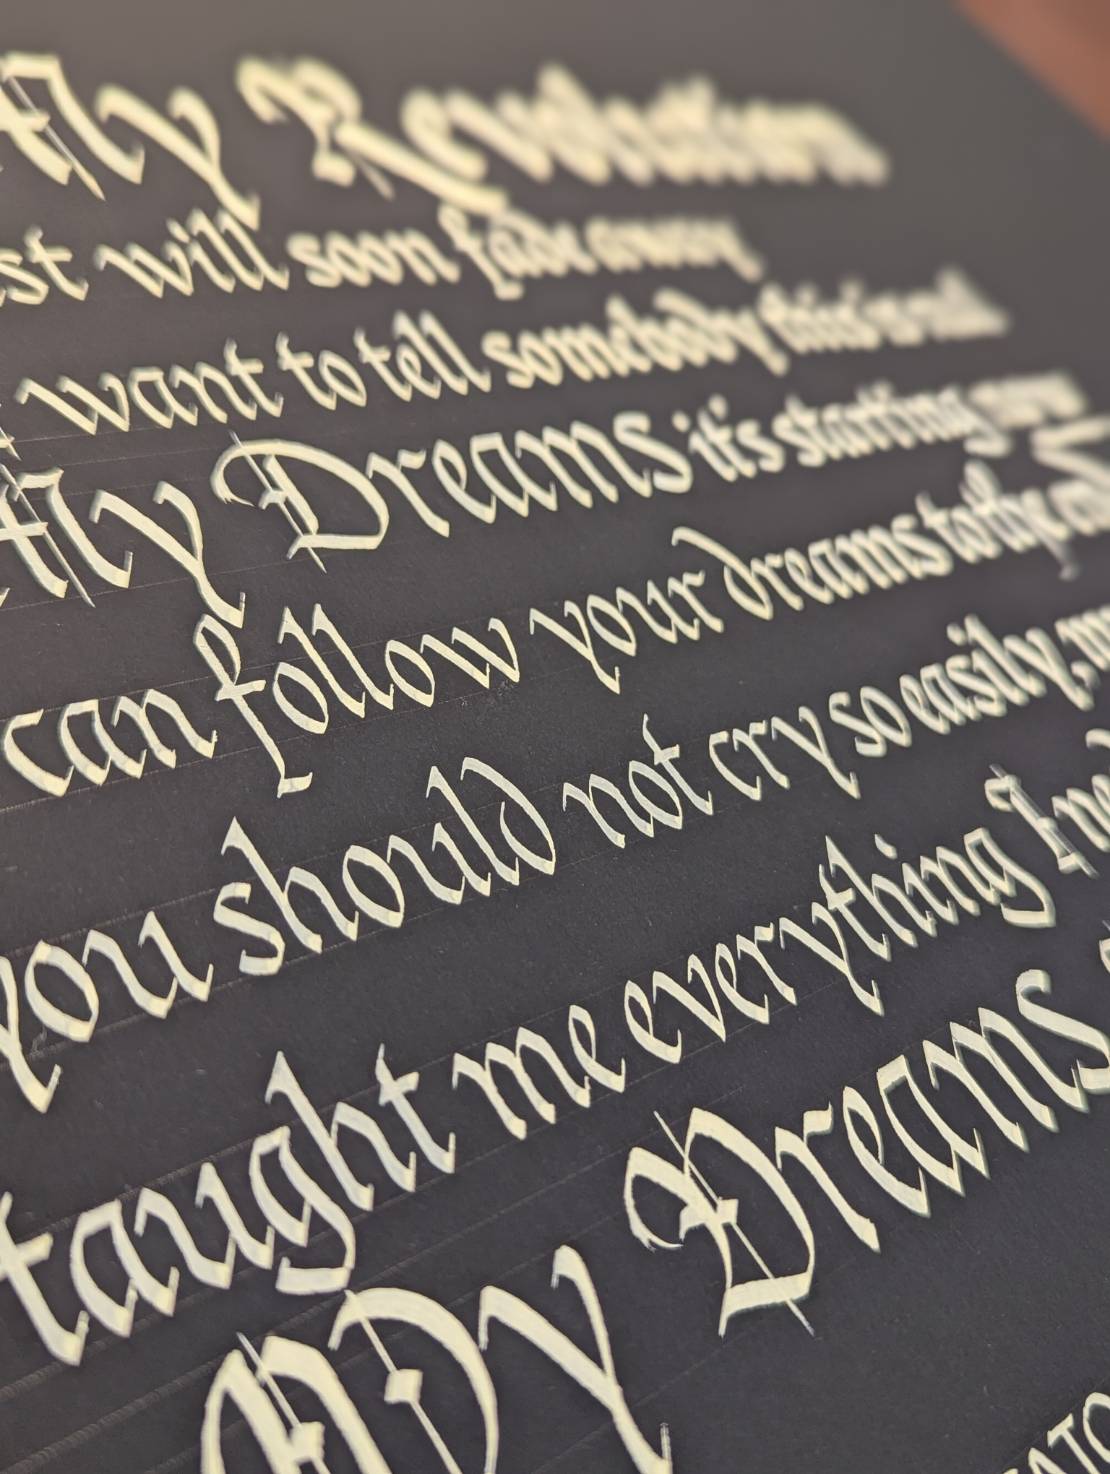 My Revolution
st will soon fade away
want to tell somebody this is real
My Dreams it's starting now
can follow your dreams to the end
you should not cry so easily, m
taught me everything I ne
My Dreams